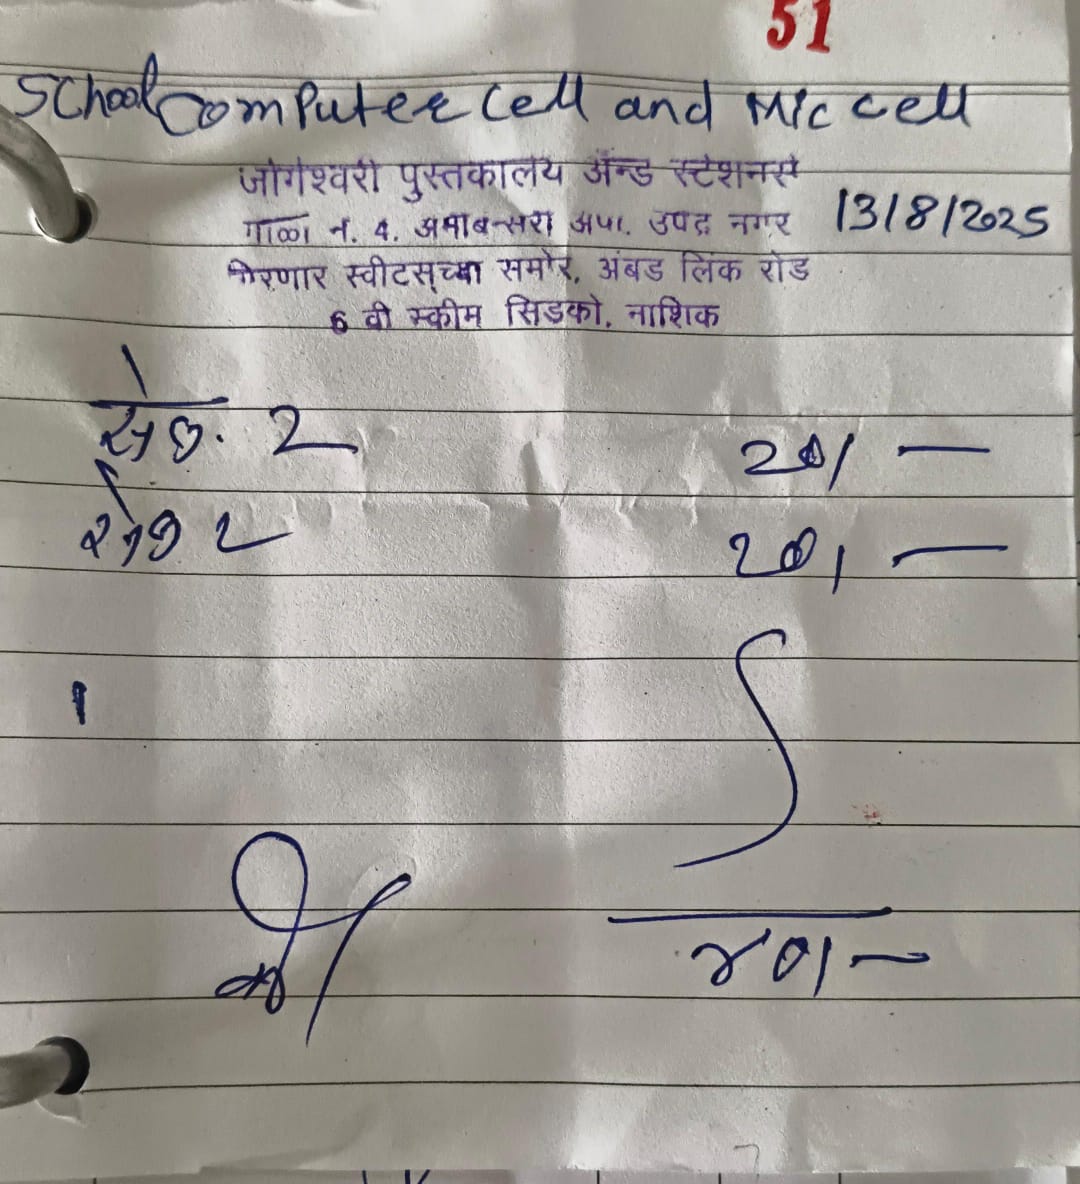 51
School Computer Cell and Mic cell
जोगेश्वरी पुस्तकालय ॲन्ड स्टेशनर्स
गाळा नं. 4, अपा. उपेंद्र नगर 13/8/2025
स्वीटस्च्या समोर, अंबड लिंक रोड
6 वी स्कीम सिडको, नाशिक
सेल. 2 २०/—
सेल 2 २०/—
४०/—